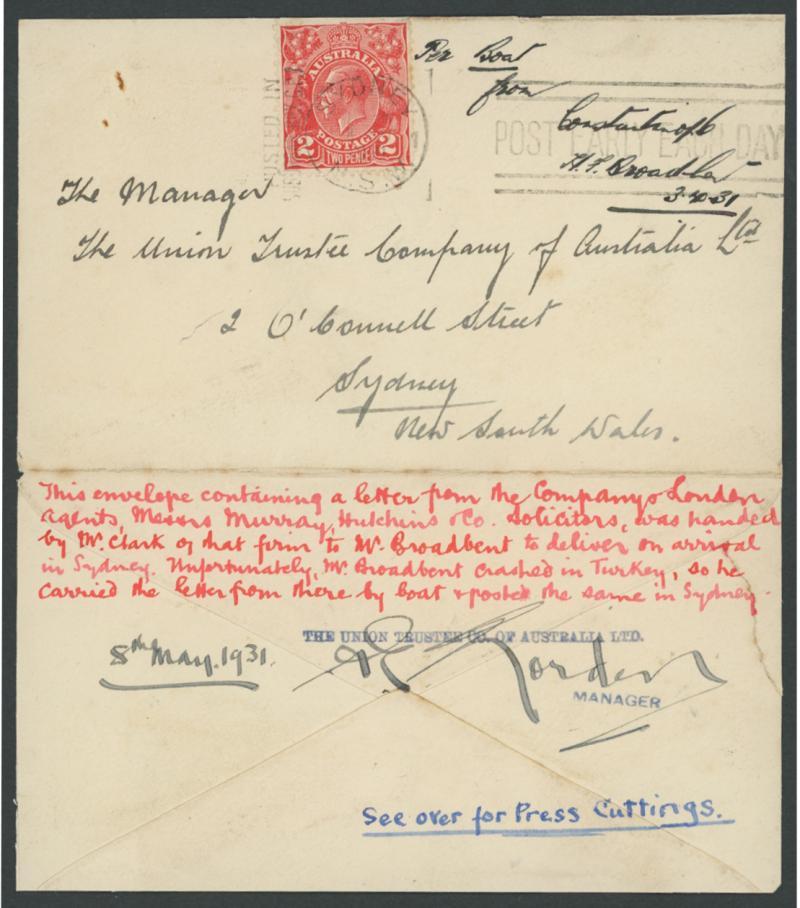 AUSTRALIA
POSTAGE
2 TWO PENCE 2
Per Boat
from
Constantinople
POST EARLY EACH DAY
H.F. Broadbent
The Manager
The Union Trustee Company of Australia Ltd
2 O'Connell Street
Sydney
New South Wales.
This envelope containing a letter from the Companys London
agents, Messrs Murray, Hutchins & Co. Solicitors, was handed
by Mr. Clark of that firm to Mr. Broadbent to deliver on arrival
in Sydney. Unfortunately, Mr. Broadbent crashed in Turkey, so he
carried the letter from there by boat & posted the same in Sydney.
THE UNION TRUSTEE CO. OF AUSTRALIA LTD.
8th May. 1931.
MANAGER
See over for Press Cuttings.